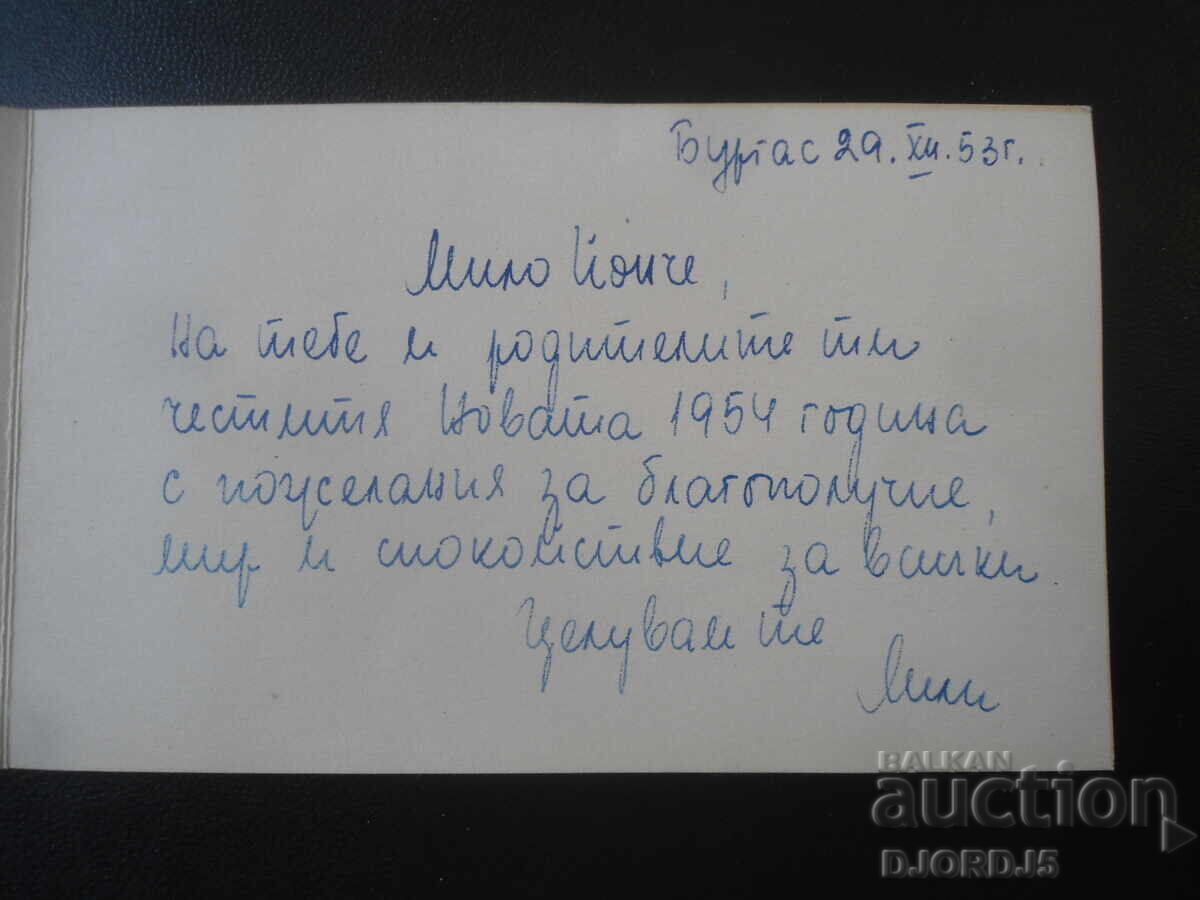 Бургас 29. XII. 53 г.
Мило Йонче,
На тебе и родителите ти
честитя Новата 1954 година
с пожелания за благополучие,
мир и спокойствие за всички
Целувам те
Мили
BALKAN
auction
DJORDJ5